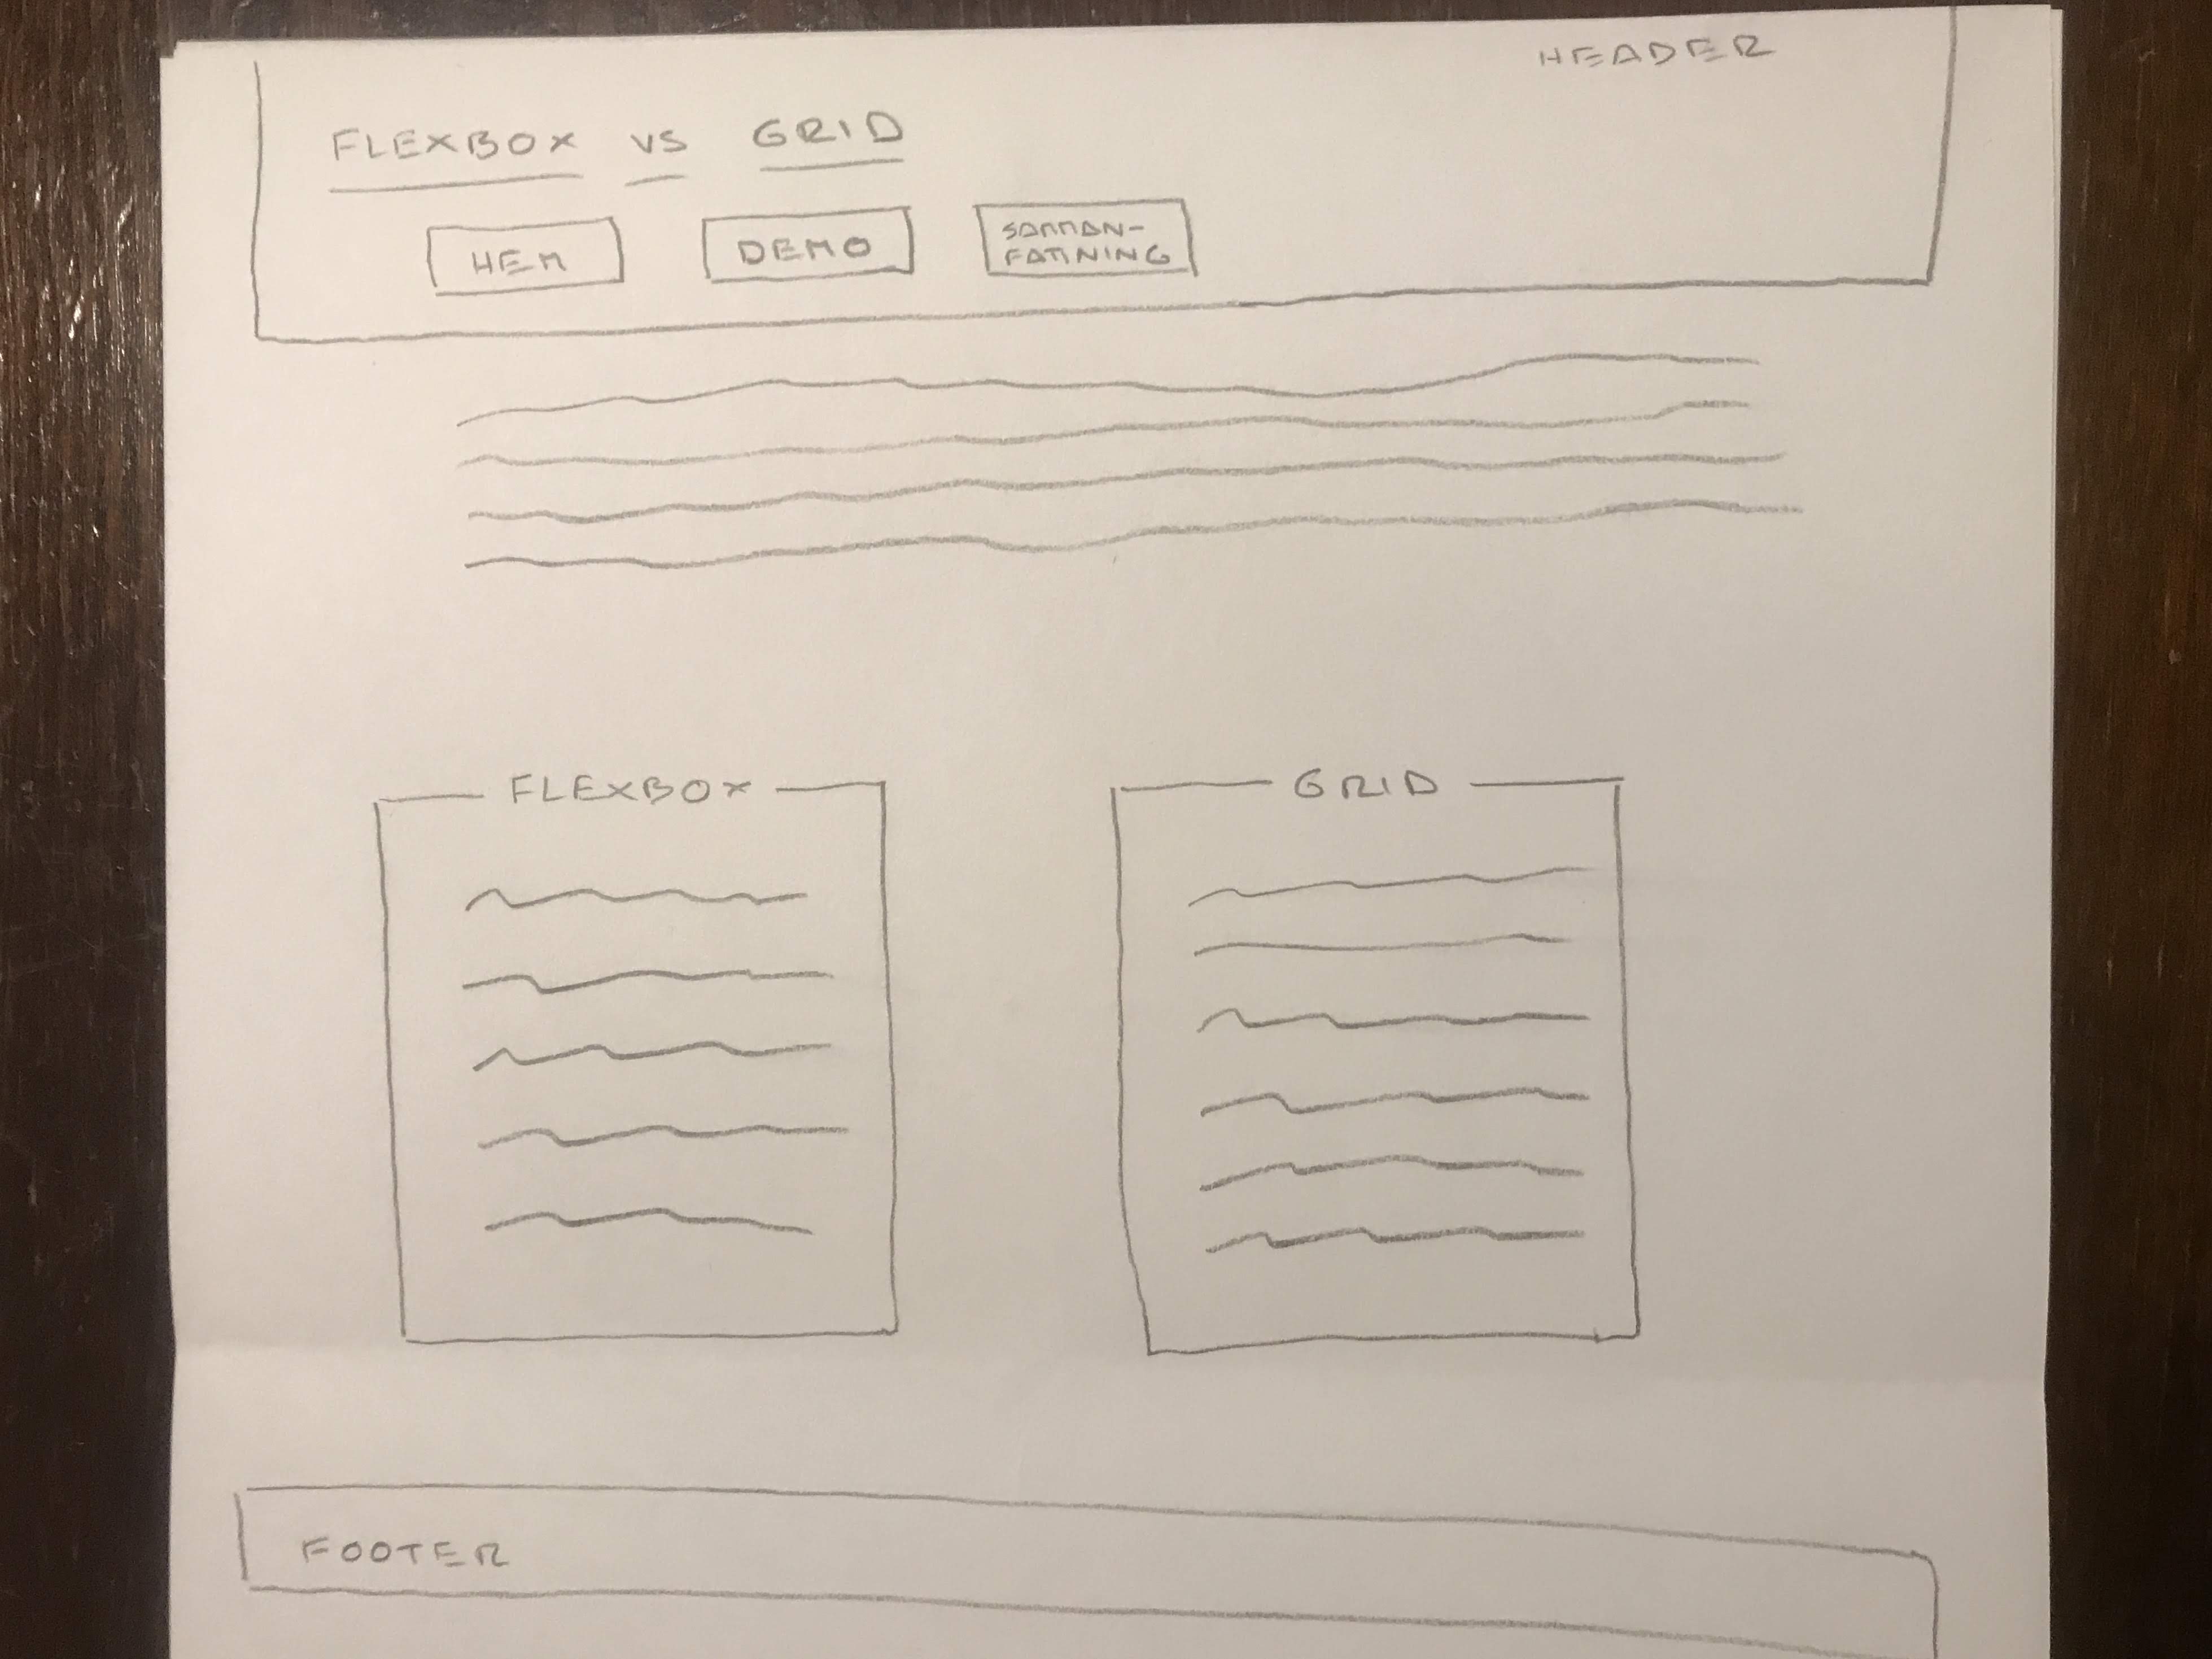 HEADER
FLEXBOX VS GRID
HEM
DEMO
SAMMAN-
FATTNING
FLEXBOX
GRID
FOOTER